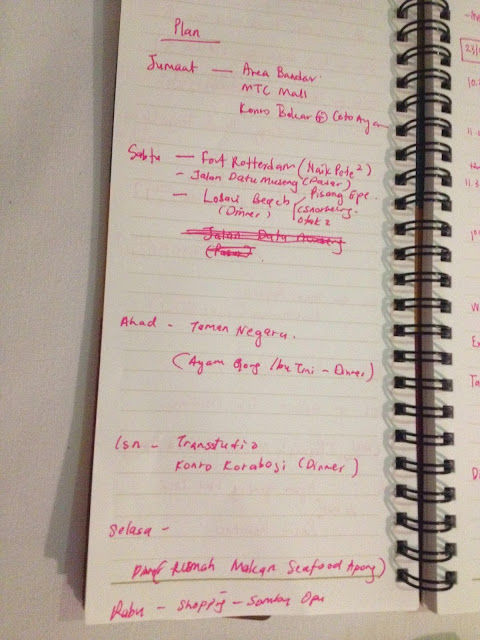 Plan
Jumaat — Area Bandar.
MTC Mall
Konro Bakar + Coto Ayam
Sabtu — Fort Rotterdam (Naik Pete²)
- Jalan Datu Museng (Pasar)
— Losari Beach Pisang Epe.
(Dinner)
Jalan Datu Museng
(Pasar)
Ahad - Taman Negara.
(Ayam Goreng Ibu Tini - Dinner)
Isn - Transstudio
Konro Karabosi (Dinner)
Selasa -
Rumah Makan Seafood Apong)
Rabu - Shopping - Somba Opu
23/
10.
11.
11.3
10
W
Ex
Ta
Di